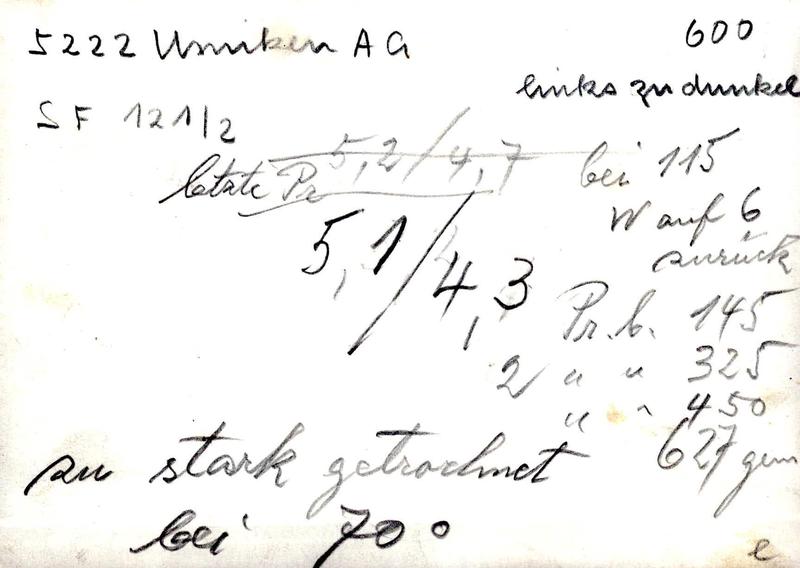 5222 Umiken AG
600
links zu dunkel
SF 121/2
5,2/4,7
letzte Pr
bei 115
W auf 6
zurück
5,1/4,3
Pr. b. 145
2 " " 325
" " 450
627 gem
zu stark getrocknet
bei 70°
e